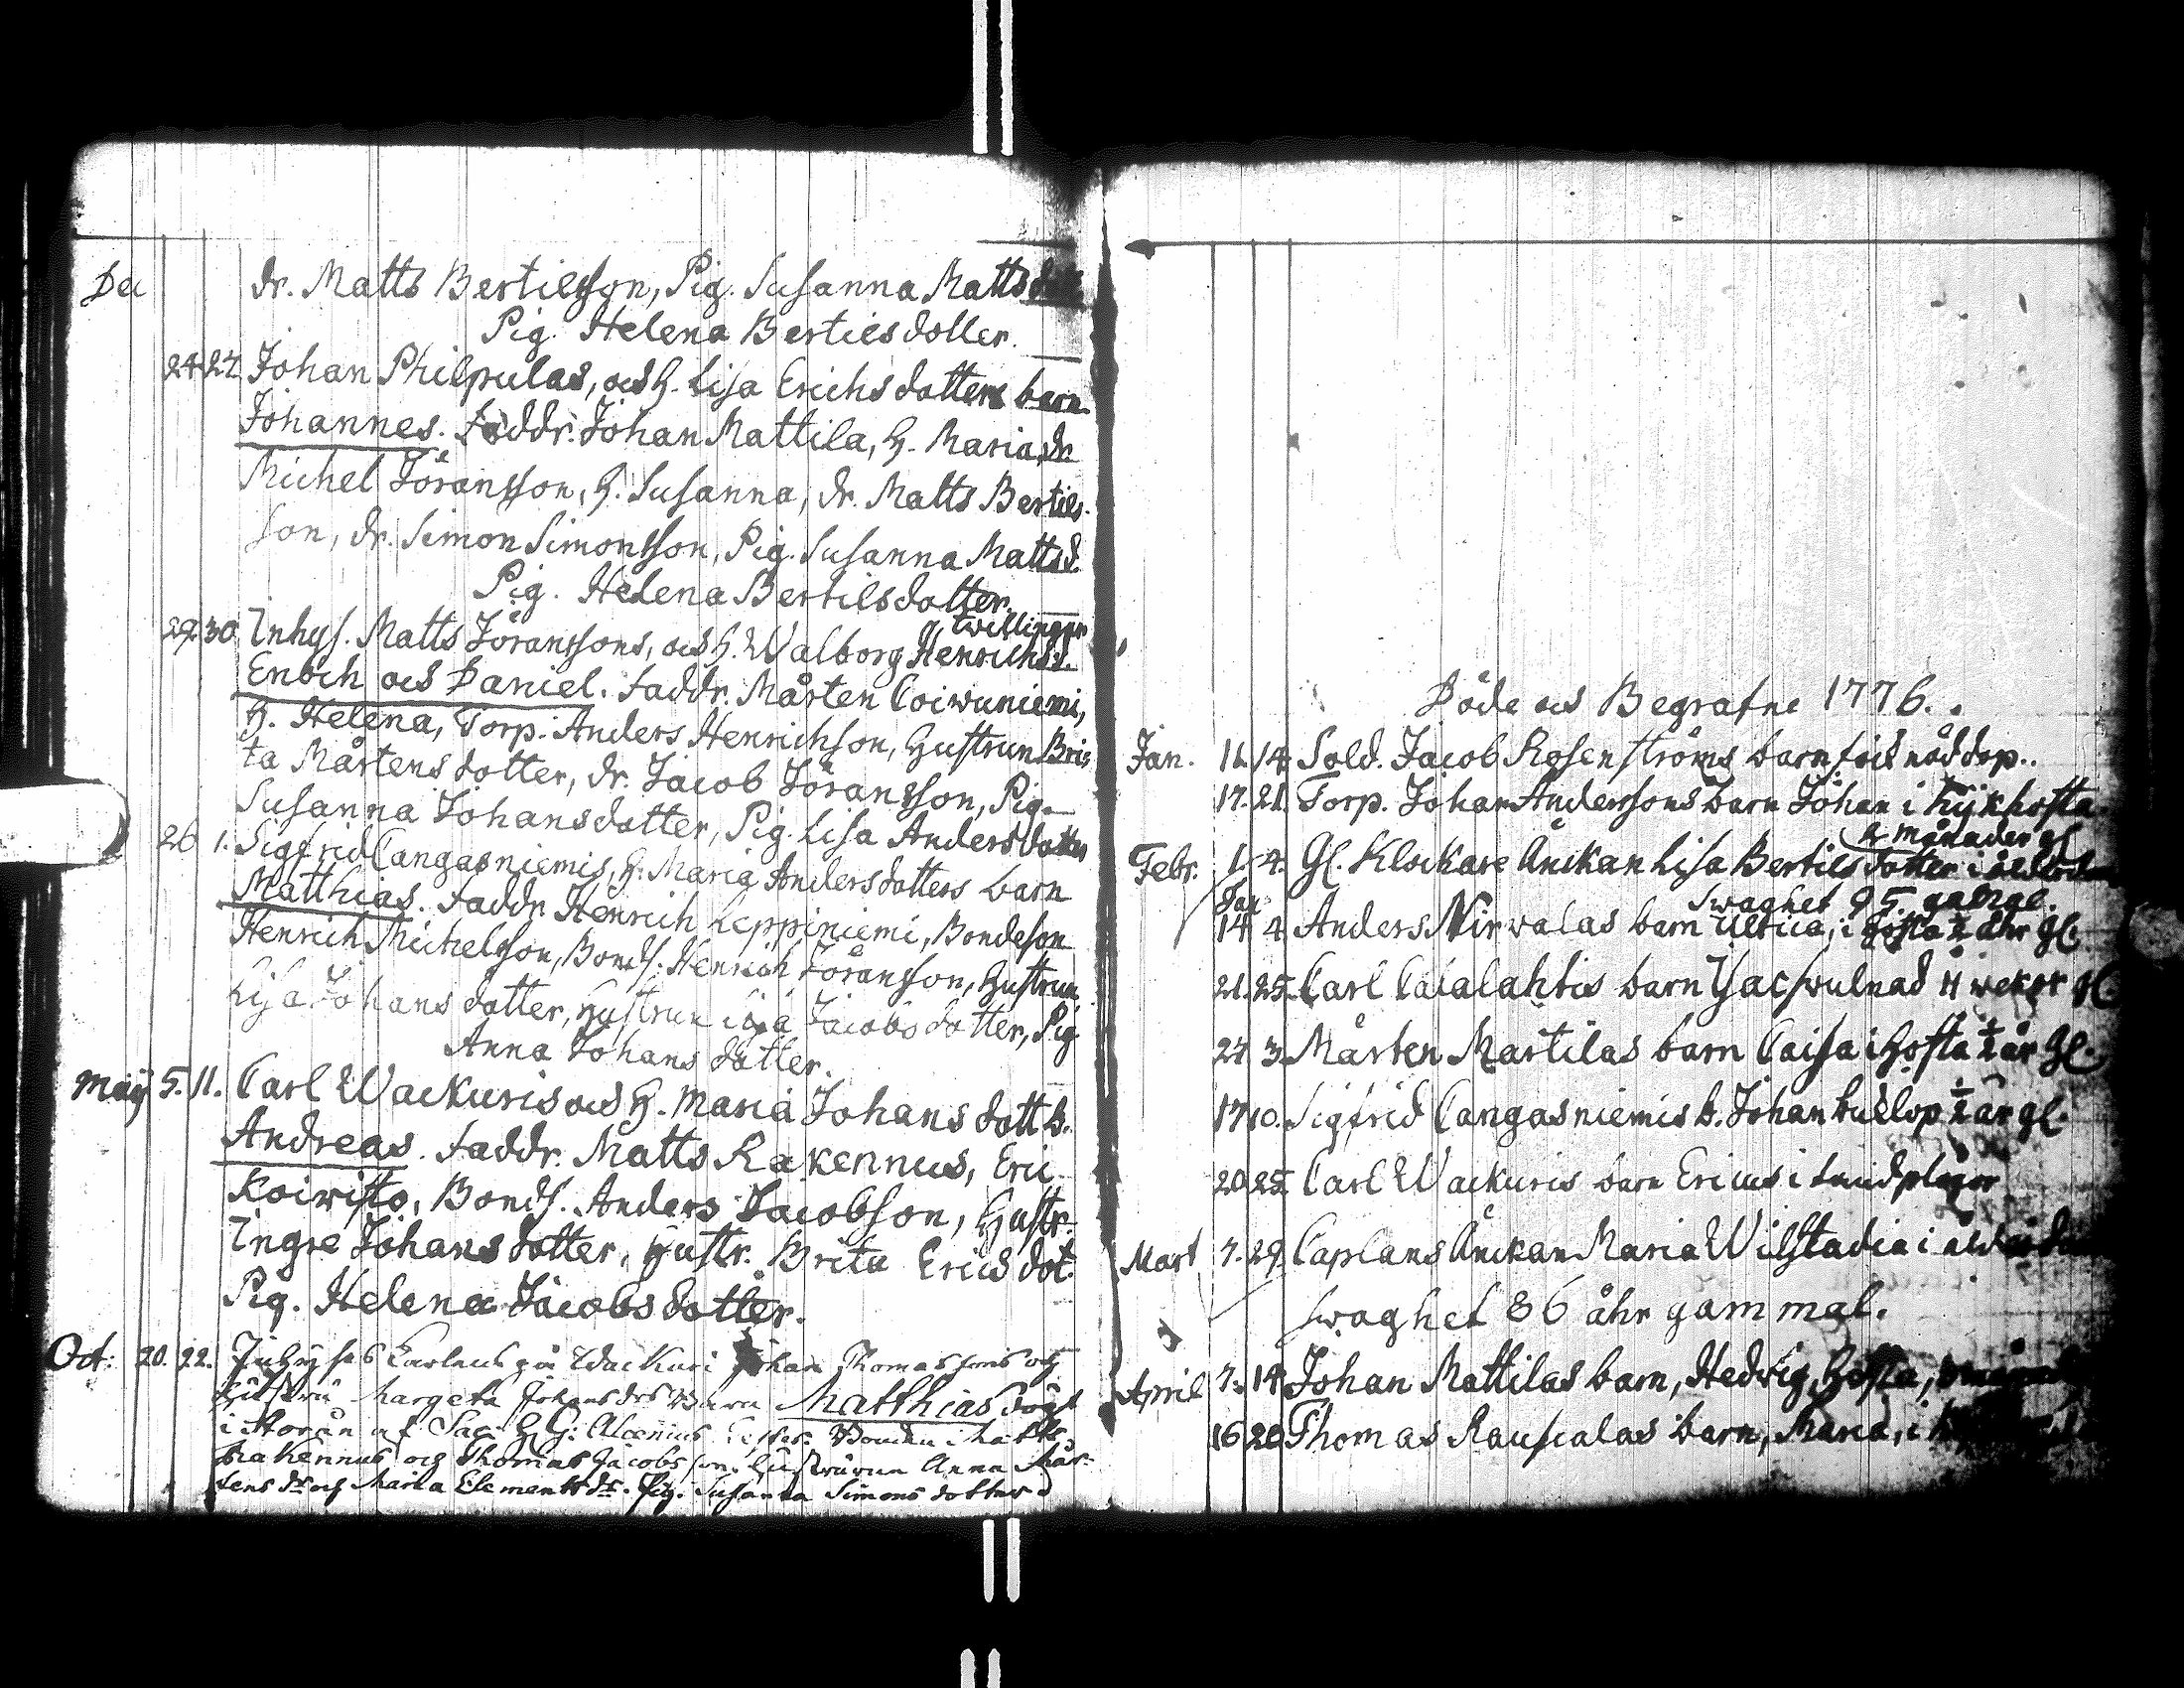 Dec dr. Matts Bertilsson, Pig. Susanna Matts dott
Pig. Helena Bertils dotter.
24. 27. Johan Philpulas, och H. Lisa Erichs dotters barn
Johannes. Faddr. Johan Mattila, H. Maria, dr.
Michel Jöransson, H. Susanna, dr. Matts Bertils-
son, dr. Simon Simonsson, Pig. Susanna Mattsd.
Pig. Helena Bertilsdotter.
twillingar
29. 30. Inhys. Matts Jöranssons, och H. Walborg Henrichsd.
Enoch och Daniel. Faddr. Mårten Coiwuniemi,
H. Helena, Torp. Anders Henrichson, Hustrun Bri-
ta Mårtens dotter, dr. Jacob Jöransson, Pig.
Susanna Johansdotter, Pig. Lisa Andersdotter
26 1. Sigfrid Cangasniemis, H. Maria Andersdotters barn
Matthias. Faddr. Henrich Leppiniemi, Bondeson
Henrich Michelsson, Bonds. Henrich Jöransson, Hustrun
Lisa Johans dotter, Hustrun Lisa Jacobs dotter, Pig.
Anna Johans dotter.
Maij 5. 11. Carl Wackuris och H. Maria Johans dott. b.
Andreas. Faddr. Matts Rakennus, Eric
Koiwisto, Bonds. Anders Jacobson, Hustr.
Ingre Johans dotter, Hustr. Brita Erics dot.
Pig. Helena Jacobs dotter.
Oct: 20. 22. Inhyses Karlens på Wackuri Johan Thomassons och
Hustrun Margeta Johansdrs Barn Matthias döpt
i Storån af Sac. H G: Alcenius Bonden Matts
Rakennus och Thomas Jacobsson. Hustrurna Anna Mår-
tens dr och Maria Clements dr. Pig. Susanna Simons dotter
Döde och Begrafne 1776.
Jan. 11. 14. Sold. Jacob Rosenströms barn fick nöddop.
17. 21. Torp. Johan Anderssons barn Johan i Kijkhosta
2 månader gl.
Febr. 1. 4. Gl. Klockare Änckan Lisa Bertils dotter i
swaghet 95
Jan
14 4. Anders Nirwalas barn Ulrica, i Hosta ½ åhr gl.
21. 25. Carl Calalahtis barn Isac swulnad 11 wekor gl.
27 3. Mårten Martilas barn Caisa i Hosta ½ år gl.
17 10. Sigfrid Cangasniemis b. Johan ½ år gl.
20 25. Carl Wackuris barn Ericus i
Mart 7. 29. Caplans Änckan Maria Wilstadia i
swaghet 86 åhr gammal.
April 7. 14. Johan Mattilas barn, Hedwig, Hosta,
16 20 Thomas Rausialas barn, Maria, i